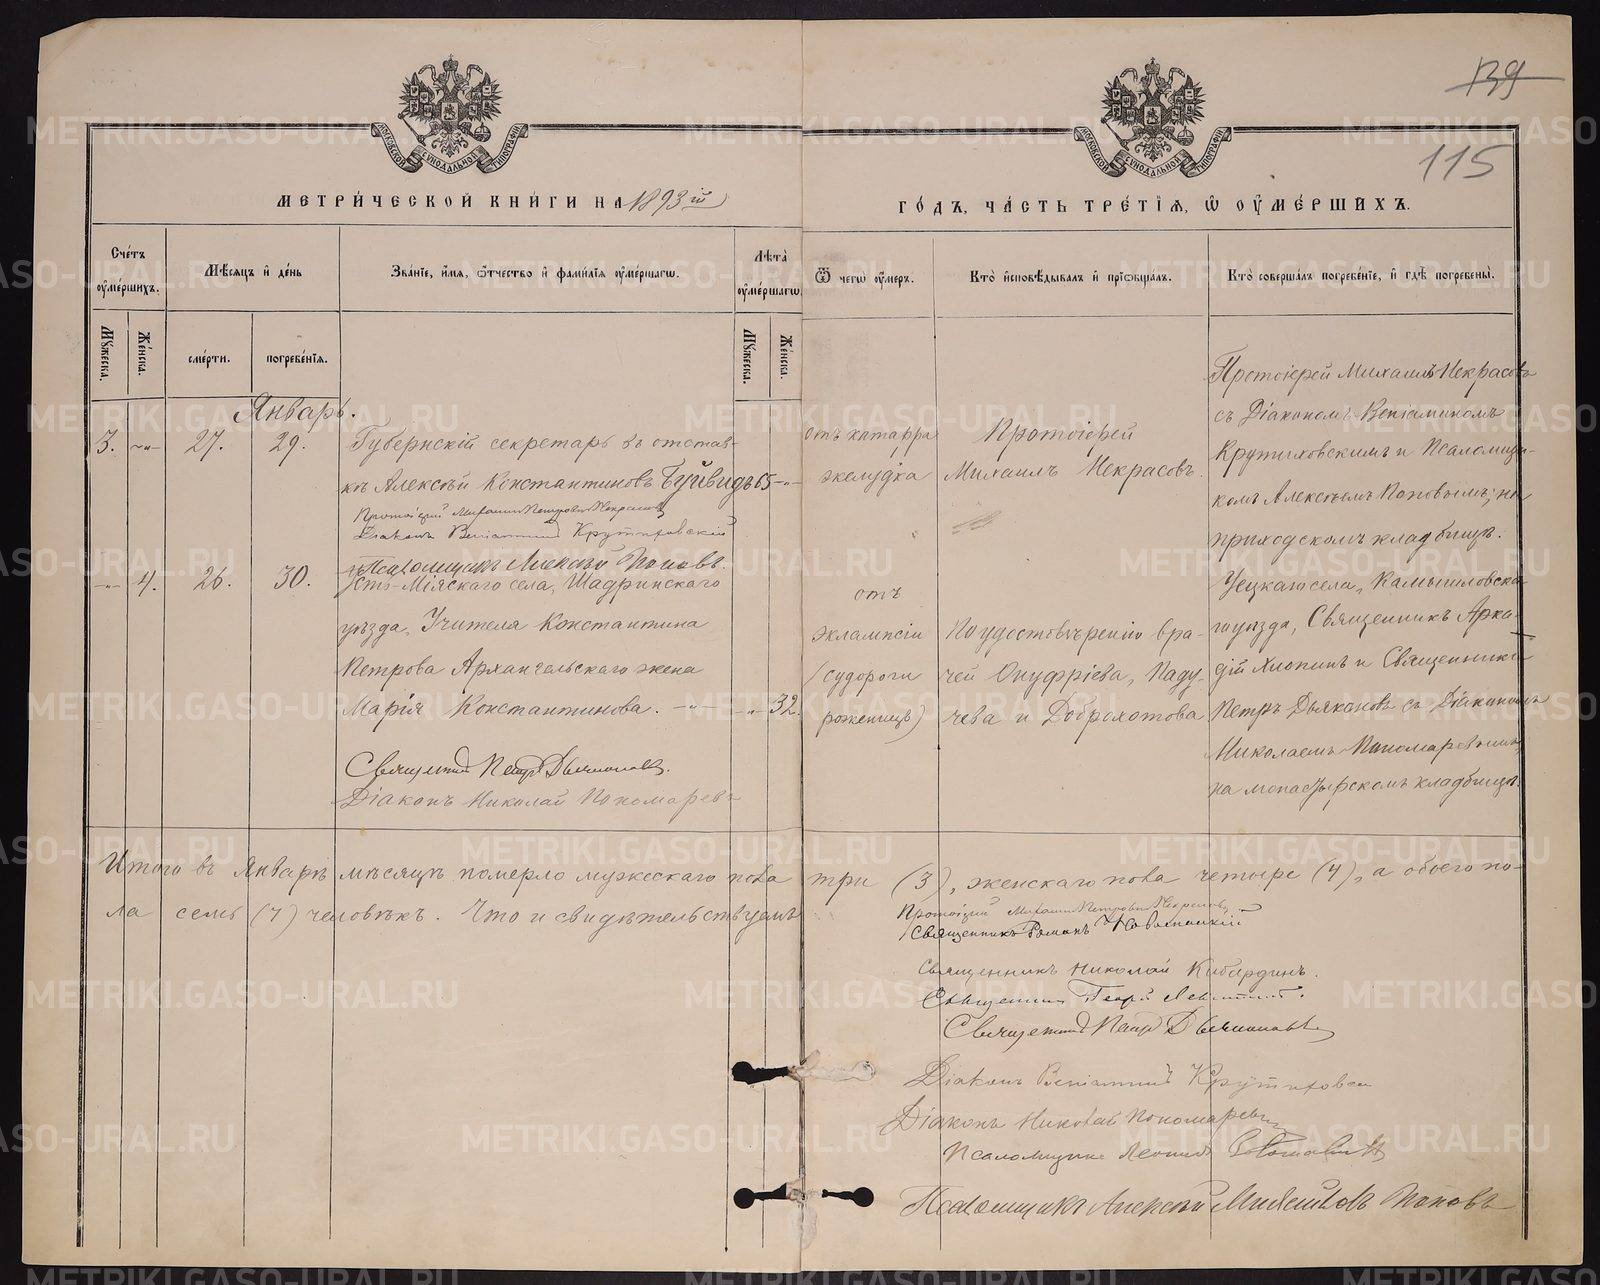 139
115
МОСКОВСКОЙ СѴНОДАЛЬНОЙ ТИПОГРАФІИ
МОСКОВСКОЙ СѴНОДАЛЬНОЙ ТИПОГРАФІИ
МЕТРИ́ЧЕСКОЙ КНИ́ГИ НА 1893й
ГО́ДЪ, ЧА́СТЬ ТРЕ́ТІѦ, Ѡ҆ ОУ҆МЕ́РШИХЪ.
Сче́тъ оу҆ме́ршихъ.
Мѣ́сѧцъ и҆ де́нь
Зва́нїе, и҆́мѧ, ѻ҆́тчество и҆ фами́лїѧ оу҆ме́ршагѡ.
Лѣ́та оу҆ме́ршагѡ
Ѿ чегѡ̀ оу҆́меръ.
Кто̀ и҆сповѣ́дывалъ и҆ прїѡбща́лъ.
Кто̀ соверша́лъ погребе́нїе, и҆ гдѣ̀ погребены̀.
Мꙋ́жеска.
Же́нска.
сме́рти.
погребе́нїѧ.
Мꙋ́жеска.
Же́нска.
Январь.
3. -„- 27. 29.
Губернскій секретарь въ отстав-
кѣ Алексѣй Константиновъ Буйвидъ 65 -„-
Протоіерей Михаилъ Петровъ Некрасовъ
Діаконъ Веніаминъ Крутиховскій
Псаломщикъ Алексѣй Поповъ.
отъ катарра
желудка
Протоіерей
Михаилъ Некрасовъ.
Протоіерей Михаилъ Некрасовъ
съ Діакономъ Веніаминомъ
Крутиховскимъ и Псаломщи-
комъ Алексѣемъ Поповымъ; на
приходскомъ кладбищѣ.
-„- 4. 26. 30.
Усть-Міяскаго села, Шадринскаго
уѣзда, Учителя Константина
Петрова Архангельскаго жена
Марія Константинова. -„- -„- 32.
Священникъ Петръ Дьяконовъ.
Діаконъ Николай Пономаревъ
отъ
эклампсіи
(судороги
роженицъ)
По удостовѣренію вра-
чей Онуфріева, Паду-
чева и Доброхотова
села, Камышловска-
го уѣзда, Священникъ Арка-
дій Хлопинъ и Священникъ
Петръ Дьяконовъ съ Діакономъ
Николаемъ Пономаревымъ,
на монастырскомъ кладбищѣ.
Итого въ Январѣ мѣсяцѣ померло мужескаго пола три (3), женскаго пола четыре (4), а обоего по-
ла семь (7) человѣкъ. Что и свидѣтельствуемъ
Протоіерей Михаилъ Петровъ Некрасовъ
Священникъ Романъ
Священникъ Николай Кибардинъ.
Священникъ Георгій
Священникъ Петръ Дьяконовъ
Діаконъ Веніаминъ Крутиховскій
Діаконъ Николай Пономаревъ
Псаломщикъ Леонидъ
Псаломщикъ Алексѣй Поповъ
METRIKI.GASO-URAL.RU